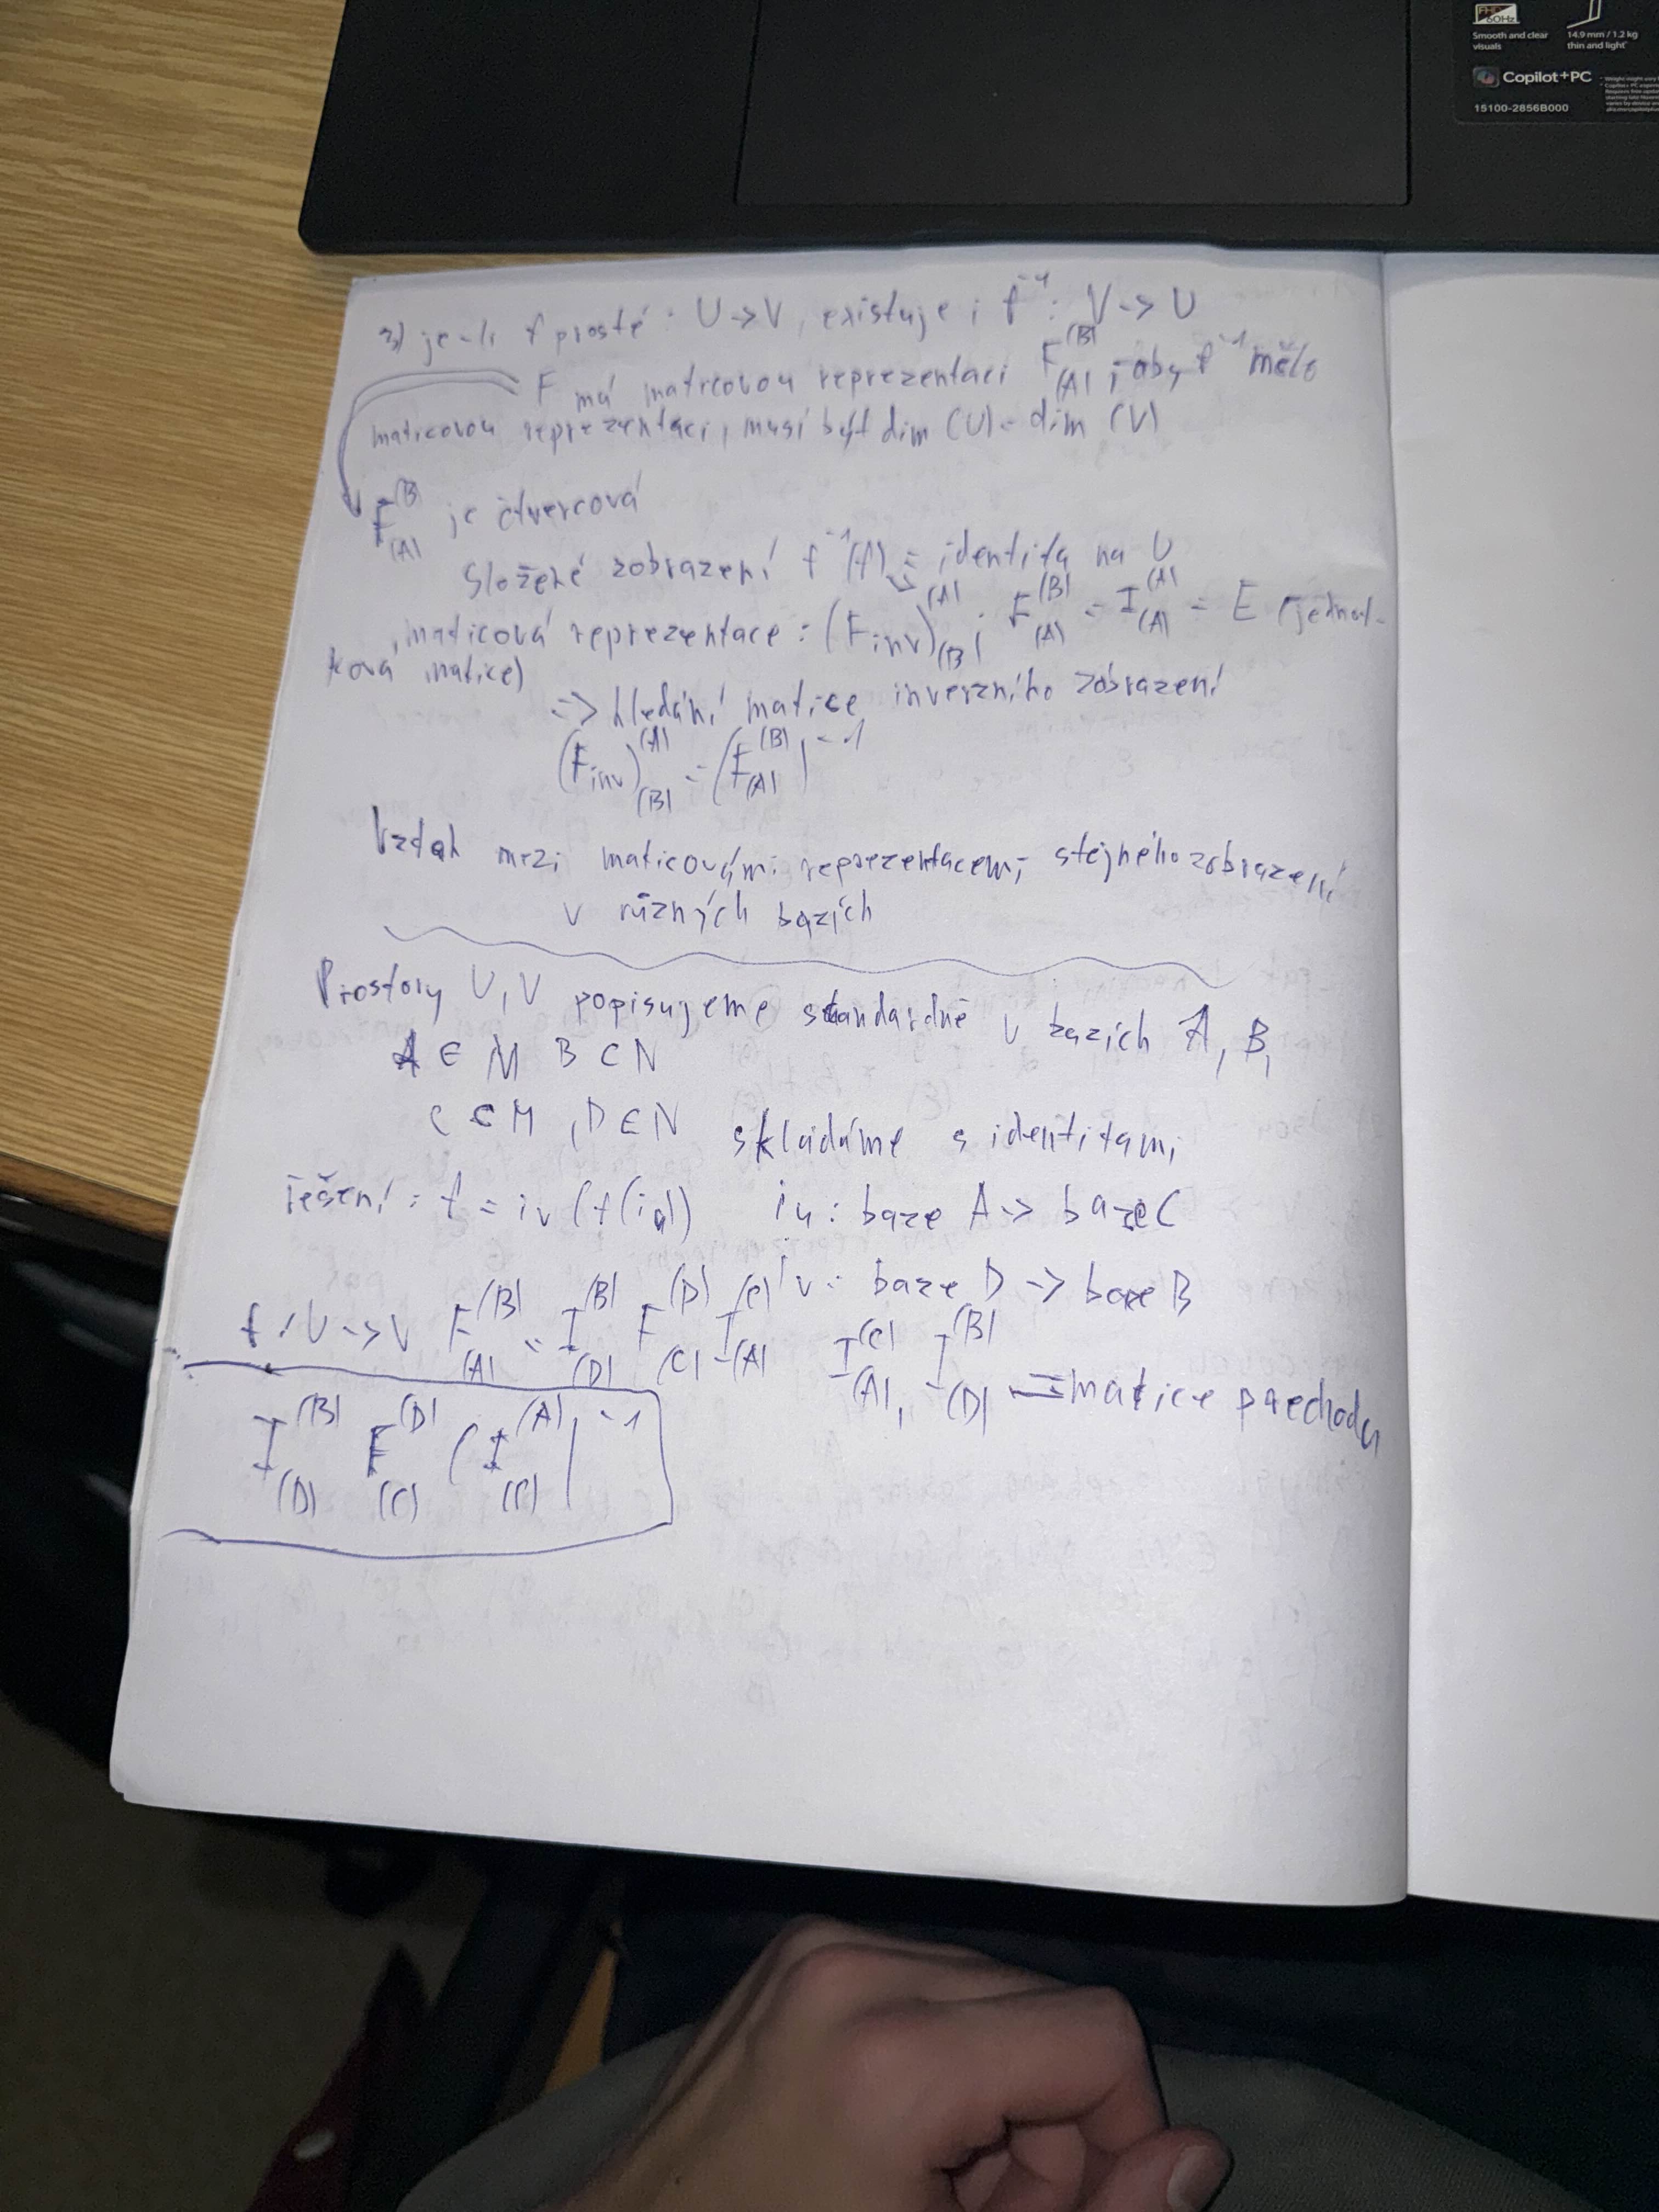 FHD
60Hz
Smooth and clear visuals
14.9 mm / 1.2 kg
thin and light
Copilot+PC
15100-2856B000
3) je-li f prosté: U->V, existuje i f⁻¹: V->U
F má maticovou reprezentaci F_(A)^(B), aby f⁻¹ mělo
maticovou reprezentaci, musí být dim (U) = dim (V)
F_(A)^(B) je čtvercová
Složené zobrazení f⁻¹(f) = identita na U
maticová reprezentace: (F_inv)_(B)^(A) · F_(A)^(B) = I_(A)^(A) = E (jednot-
ková matice)
=> hledání matice inverzního zobrazení
(F_inv)_(B)^(A) = (F_(A)^(B))⁻¹
Vztah mezi maticovými reprezentacemi stejného zobrazení
v různých bazích
Prostory U, V popisujeme standardně v bazích A, B,
A ∈ M B ⊂ N
C ∈ M, D ∈ N skládáme s identitami
řešení: f = i_v (f(i_u)) i_u: baze A -> baze C
i_v: baze D -> baze B
f: U->V F_(A)^(B) = I_(D)^(B) F_(C)^(D) I_(A)^(C) I_(A)^(C), I_(D)^(B) = matice přechodu
I_(D)^(B) F_(C)^(D) (I_(C)^(A))⁻¹